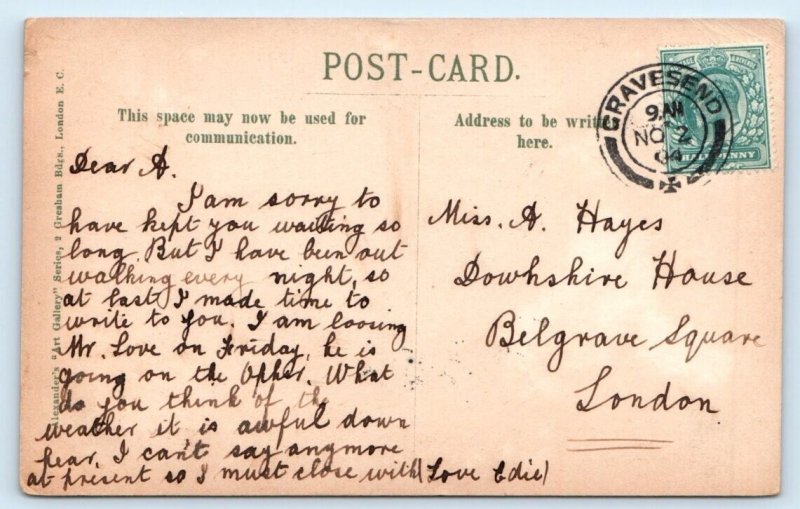 POST-CARD.
This space may now be used for
communication.
Address to be writte
here.
GRAVESEND
9 AM
NO 2
04
PENNY
Alexander's "Art Gallery" Series, 2 Gresham Bdgs., London E. C.
Dear A.
I am sorry to
have kept you waiting so
long. But I have been out
walking every night, so
at last I made time to
write to you. I am loosing
Mr. Love on Friday, he is
going on the Opher. What
do you think of the
weather it is awful down
hear. I can't say anymore
at present so I must close with (Love Edie)
Miss. A. Hayes
Dowhshire House
Belgrave Square
London